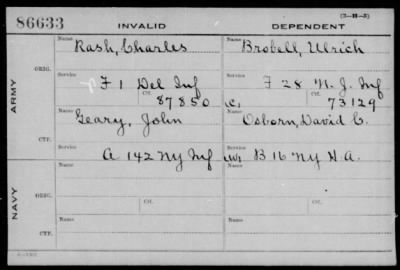 86633 INVALID DEPENDENT (3-H-3)
Name Name
Rash, Charles Brobell, Ulrich
ORIG. Service Service
F 1 Del Inf F 28 N. J. Inf
Ctf. 87850 Ctf. 73129
ARMY
Name Name
Geary, John Osborn, David C.
CTF. Service Service
A 142 NY Inf B 16 NY H.A.
Name Name
ORIG. Service Ctf. Service Ctf.
NAVY
Name Name
CTF. Service Service